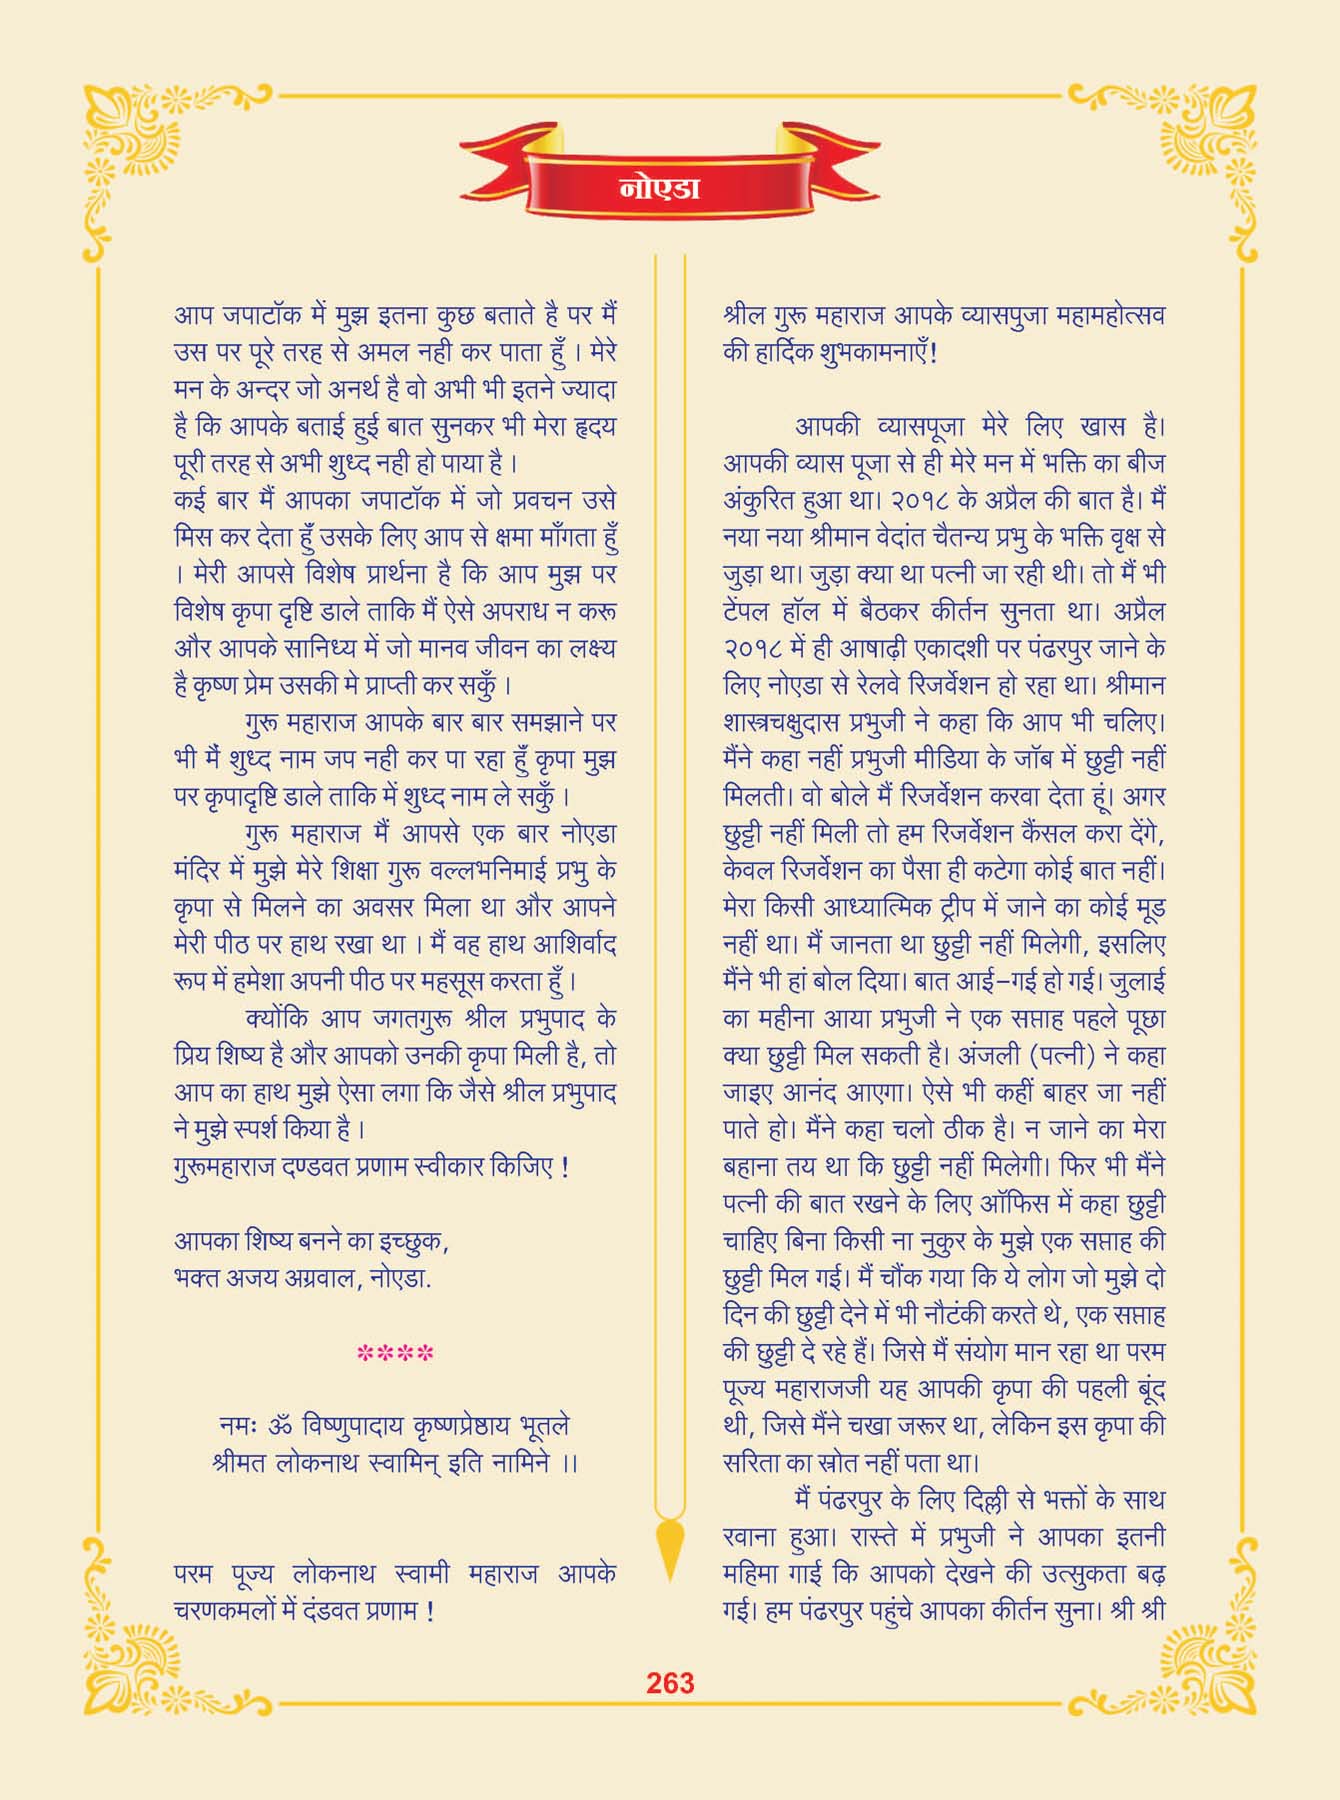 नोएडा
आप जपाटॉक में मुझ इतना कुछ बताते है पर मैं
उस पर पूरे तरह से अमल नही कर पाता हूँ । मेरे
मन के अन्दर जो अनर्थ है वो अभी भी इतने ज्यादा
है कि आपके बताई हुई बात सुनकर भी मेरा हृदय
पूरी तरह से अभी शुध्द नही हो पाया है ।
कई बार मैं आपका जपाटॉक में जो प्रवचन उसे
मिस कर देता हुँ उसके लिए आप से क्षमा माँगता हुँ
। मेरी आपसे विशेष प्रार्थना है कि आप मुझ पर
विशेष कृपा दृष्टि डाले ताकि मैं ऐसे अपराध न करू
और आपके सानिध्य में जो मानव जीवन का लक्ष्य
है कृष्ण प्रेम उसकी मे प्राप्ती कर सकुँ ।
गुरू महाराज आपके बार बार समझाने पर
भी मैं शुध्द नाम जप नही कर पा रहा हुँ कृपा मुझ
पर कृपादृष्टि डाले ताकि में शुध्द नाम ले सकुँ ।
गुरू महाराज मैं आपसे एक बार नोएडा
मंदिर में मुझे मेरे शिक्षा गुरू वल्लभनिमाई प्रभु के
कृपा से मिलने का अवसर मिला था और आपने
मेरी पीठ पर हाथ रखा था । मैं वह हाथ आशिर्वाद
रूप में हमेशा अपनी पीठ पर महसूस करता हुँ ।
क्योंकि आप जगतगुरू श्रील प्रभुपाद के
प्रिय शिष्य है और आपको उनकी कृपा मिली है, तो
आप का हाथ मुझे ऐसा लगा कि जैसे श्रील प्रभुपाद
ने मुझे स्पर्श किया है ।
गुरूमहाराज दण्डवत प्रणाम स्वीकार किजिए !
आपका शिष्य बनने का इच्छुक,
भक्त अजय अग्रवाल, नोएडा.
****
नमः ॐ विष्णुपादाय कृष्णप्रेष्ठाय भूतले
श्रीमत लोकनाथ स्वामिन् इति नामिने ।।
परम पूज्य लोकनाथ स्वामी महाराज आपके
चरणकमलों में दंडवत प्रणाम !
श्रील गुरू महाराज आपके व्यासपुजा महामहोत्सव
की हार्दिक शुभकामनाएँ!
आपकी व्यासपूजा मेरे लिए खास है।
आपकी व्यास पूजा से ही मेरे मन में भक्ति का बीज
अंकुरित हुआ था। २०१८ के अप्रैल की बात है। मैं
नया नया श्रीमान वेदांत चैतन्य प्रभु के भक्ति वृक्ष से
जुड़ा था। जुड़ा क्या था पत्नी जा रही थी। तो मैं भी
टेंपल हॉल में बैठकर कीर्तन सुनता था। अप्रैल
२०१८ में ही आषाढ़ी एकादशी पर पंढरपुर जाने के
लिए नोएडा से रेलवे रिजर्वेशन हो रहा था। श्रीमान
शास्त्रचक्षुदास प्रभुजी ने कहा कि आप भी चलिए।
मैंने कहा नहीं प्रभुजी मीडिया के जॉब में छुट्टी नहीं
मिलती। वो बोले मैं रिजर्वेशन करवा देता हूं। अगर
छुट्टी नहीं मिली तो हम रिजर्वेशन कैंसल करा देंगे,
केवल रिजर्वेशन का पैसा ही कटेगा कोई बात नहीं।
मेरा किसी आध्यात्मिक ट्रीप में जाने का कोई मूड
नहीं था। मैं जानता था छुट्टी नहीं मिलेगी, इसलिए
मैंने भी हां बोल दिया। बात आई-गई हो गई। जुलाई
का महीना आया प्रभुजी ने एक सप्ताह पहले पूछा
क्या छुट्टी मिल सकती है। अंजली (पत्नी) ने कहा
जाइए आनंद आएगा। ऐसे भी कहीं बाहर जा नहीं
पाते हो। मैंने कहा चलो ठीक है। न जाने का मेरा
बहाना तय था कि छुट्टी नहीं मिलेगी। फिर भी मैंने
पत्नी की बात रखने के लिए ऑफिस में कहा छुट्टी
चाहिए बिना किसी ना नुकुर के मुझे एक सप्ताह की
छुट्टी मिल गई। मैं चौंक गया कि ये लोग जो मुझे दो
दिन की छुट्टी देने में भी नौटंकी करते थे, एक सप्ताह
की छुट्टी दे रहे हैं। जिसे मैं संयोग मान रहा था परम
पूज्य महाराजजी यह आपकी कृपा की पहली बूंद
थी, जिसे मैंने चखा जरूर था, लेकिन इस कृपा की
सरिता का स्रोत नहीं पता था।
मैं पंढरपुर के लिए दिल्ली से भक्तों के साथ
रवाना हुआ। रास्ते में प्रभुजी ने आपका इतनी
महिमा गाई कि आपको देखने की उत्सुकता बढ़
गई। हम पंढरपुर पहुंचे आपका कीर्तन सुना। श्री श्री
263